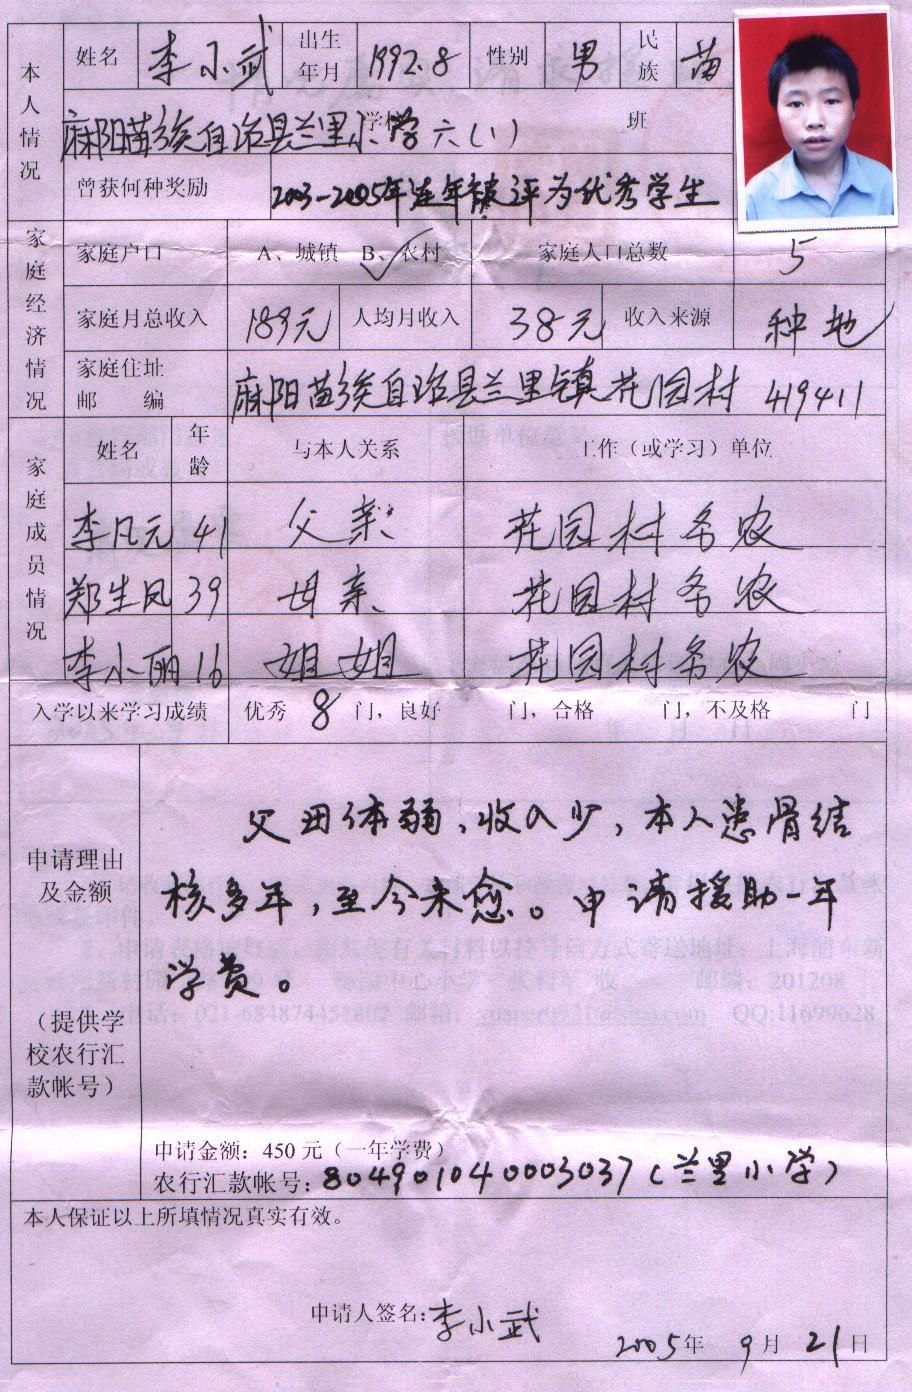 本人情况
姓名 李小武 出生年月 1992.8 性别 男 民族 苗
麻阳苗族自治县兰里小学 学校 六(1) 班
曾获何种奖励 2003-2005年连年被评为优秀学生
家庭经济情况
家庭户口 A、城镇 B、农村 家庭人口总数 5
家庭月总收入 189元 人均月收入 38元 收入来源 种地
家庭住址
邮 编 麻阳苗族自治县兰里镇花园村 419411
家庭成员情况
姓名 年龄 与本人关系 工作（或学习）单位
李凡元 41 父亲 花园村务农
郑生凤 39 母亲 花园村务农
李小丽 16 姐姐 花园村务农
入学以来学习成绩 优秀 8 门，良好 门，合格 门，不及格 门
申请理由及金额
（提供学校农行汇款帐号）
父母体弱，收入少，本人患骨结
核多年，至今未愈。申请援助一年
学费。
申请金额：450 元（一年学费）
农行汇款帐号：804901040003037（兰里小学）
本人保证以上所填情况真实有效。
申请人签名：李小武
2005年 9月 21日